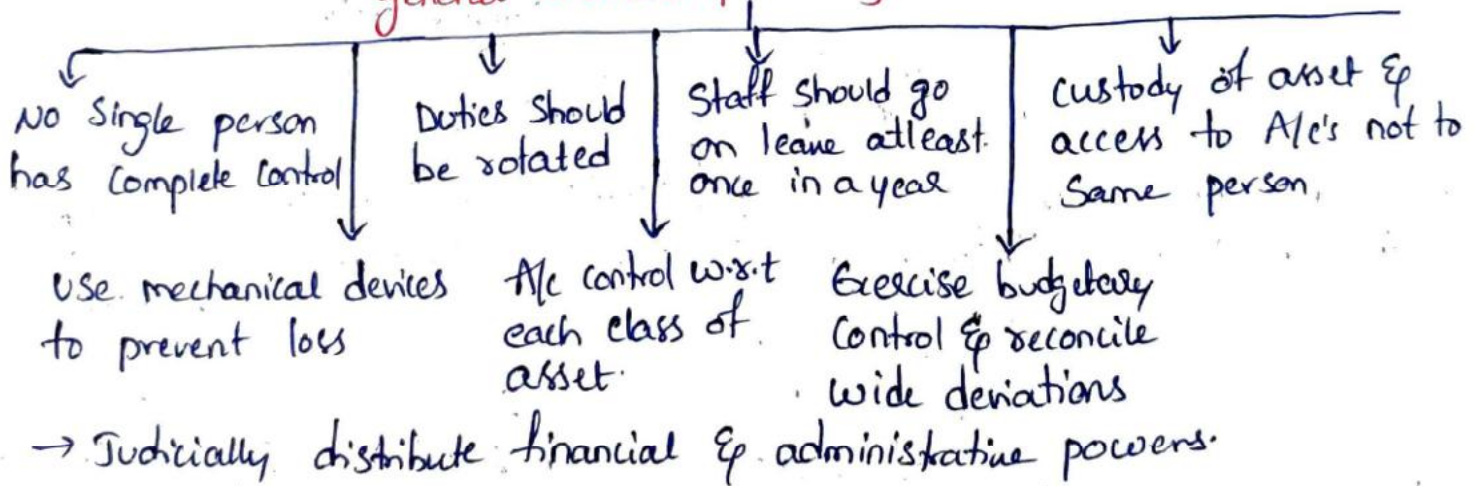 general
No Single person
has Complete Control
Duties Should
be rotated
Staff should go
on leave atleast
once in a year
Custody of asset &
access to A/c's not to
Same person,
Use mechanical devices
to prevent loss
A/c control w.r.t
each class of
asset.
Exercise budgetary
Control & reconcile
wide deviations
→ Judicially distribute financial & administrative powers.